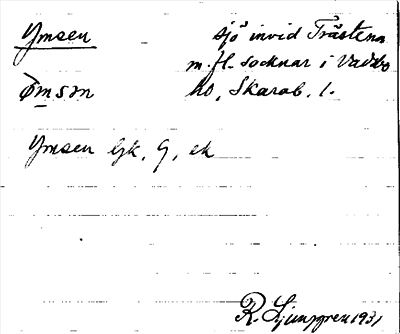 Ymsen
sjö invid Trästena
m.fl. socknar i Vadsbo
hd, Skarab. l.
Ymsen Gjk, G, ek
R. Ljunggren 1931